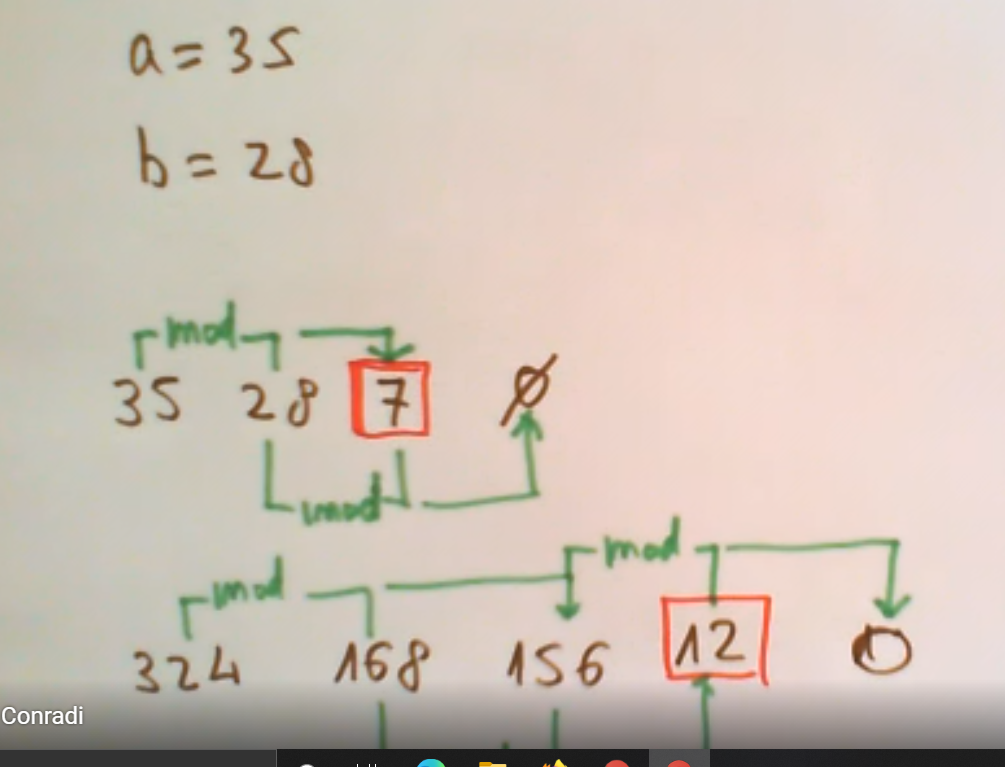 a = 35
b = 28
mod
35 28 7 0
mod
mod
mod
324 168 156 12 0
Conradi